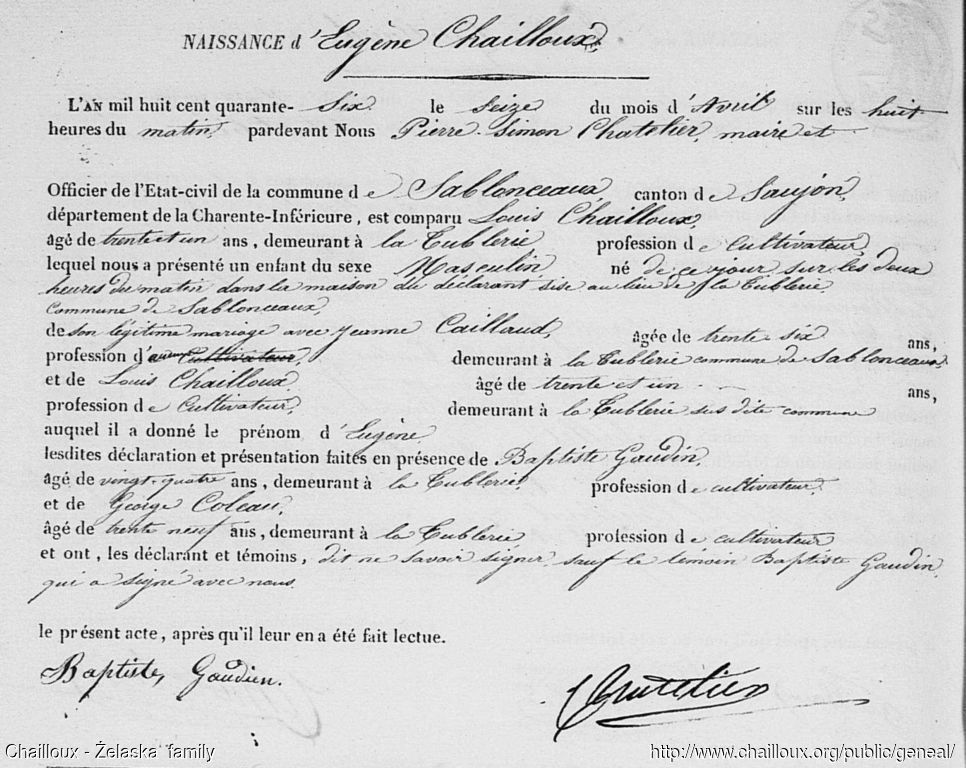 NAISSANCE d'Eugène Chailloux.
L'AN mil huit cent quarante- Six le Seize du mois d'Avril sur les huit
heures du matin, pardevant Nous Pierre-Simon Chatelier, maire et
Officier de l'Etat-civil de la commune de Sablonceaux, canton de Saujon,
département de la Charente-Inférieure, est comparu Louis Chailloux,
âgé de trente et un ans, demeurant à la Tublerie profession de Cultivateur,
lequel nous a présenté un enfant du sexe Masculin né de ce jour sur les deux
heures du matin dans la maison du déclarant sise au lieu de la Tublerie,
Commune de Sablonceaux,
de son légitime mariage avec Jeanne Caillaud, âgée de trente six ans,
profession d' Cultivateur, demeurant à la Tublerie commune de Sablonceaux
et de Louis Chailloux âgé de trente et un - - ans,
profession de Cultivateur, demeurant à la Tublerie sus dite commune
auquel il a donné le prénom d'Eugène
lesdites déclaration et présentation faites en présence de Baptiste Gaudin,
âgé de vingt-quatre ans, demeurant à la Tublerie, profession de cultivateur,
et de George Coleau,
âgé de trente neuf ans, demeurant à la Tublerie profession de cultivateur
et ont, les déclarant et témoins, dit ne savoir signer sauf le témoin Baptiste Gaudin,
qui a signé avec nous.
le présent acte, après qu'il leur en a été fait lecture.
Baptiste Gaudin.
Chatelier
Chailloux - Želaska family
http://www.chailloux.org/public/geneal/